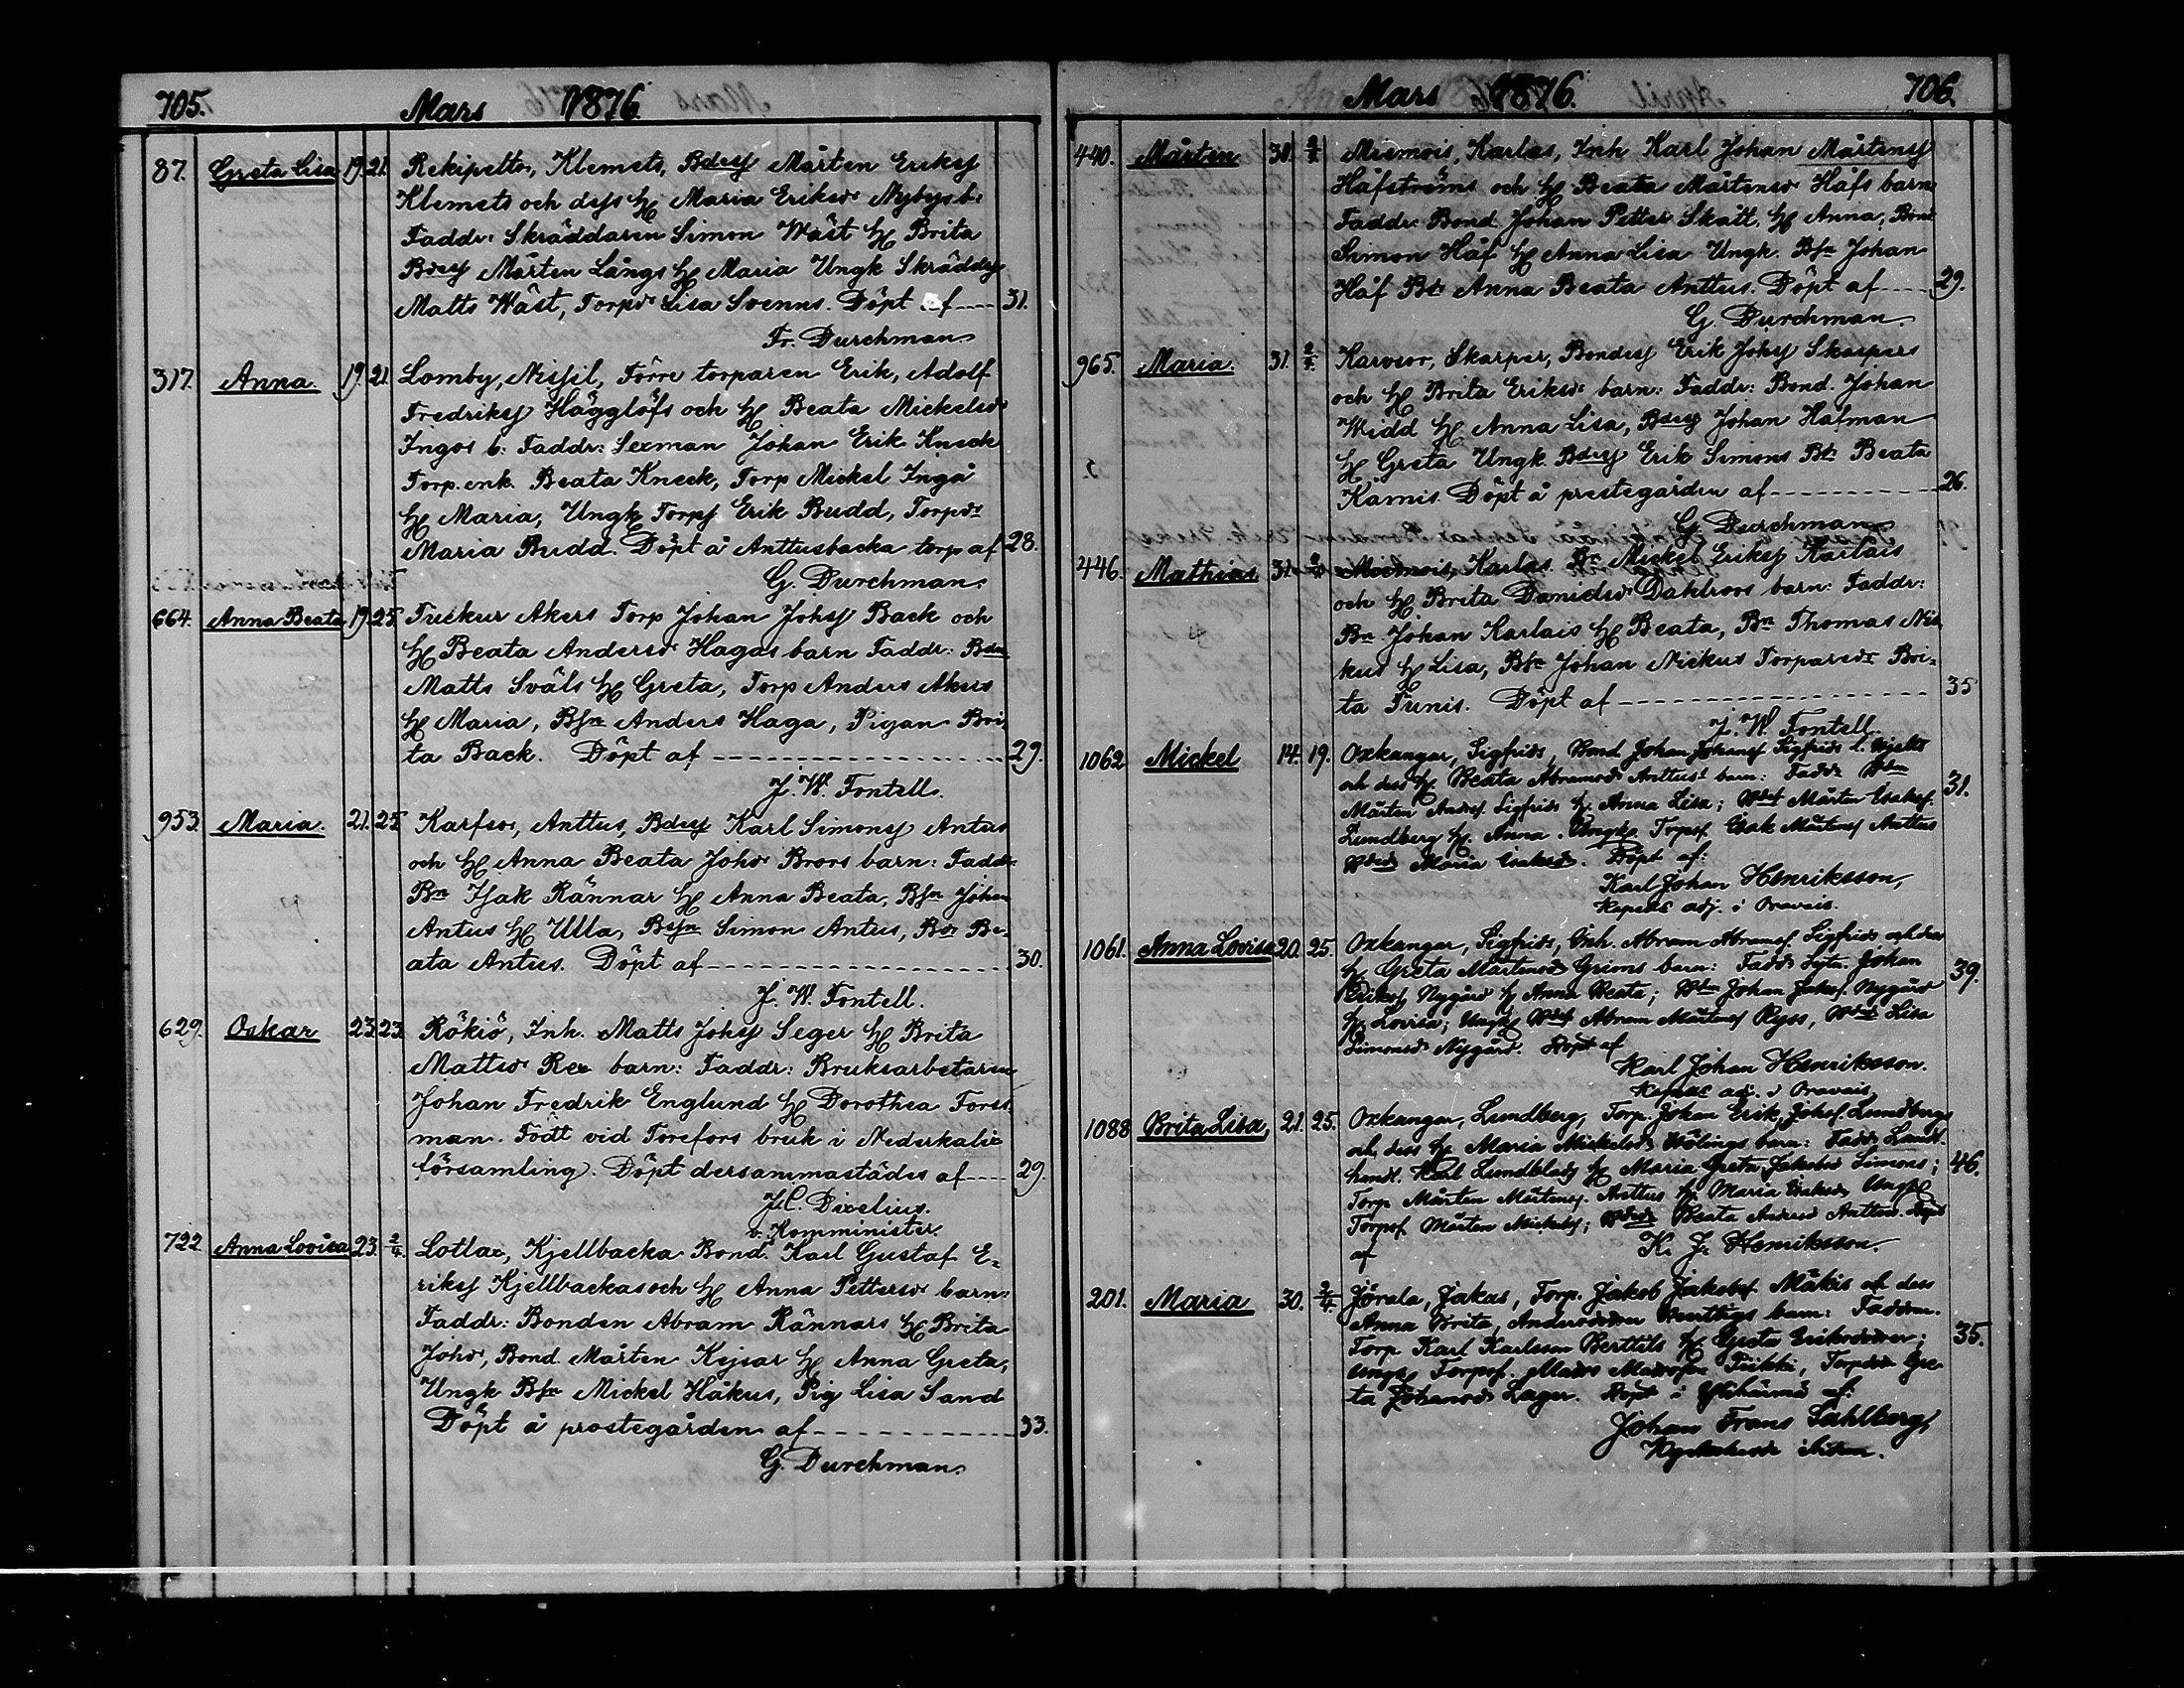 705. Mars 1876
87. Greta Lisa 19. 21. Rekipelto, Klemets, Bdesj Mårten Eriksj
Klemets och dess Hu Maria Eriksdr Nybys b:
Faddr: Skräddaren Simon Wäst Hu Brita
Bdesj Mårten Långs Hu Maria Ungk Skräddsj
Matts Wäst, Torpdr Lisa Svenns. Döpt af 31.
Fr. Durchman
317. Anna. 19. 21. Lomby, Nissil, Förre torparen Erik, Adolf
Fredriksj Hägglöfs och Hu Beata Mickelsdr
Ingos b: Faddr: Sexman Johan Erik Kneck
Torp.enk. Beata Kneck, Torp Mickel Ingå
Hu Maria, Ungk Torpsj Erik Budd, Torpdr
Maria Budd. Döpt å Anttusbacka torp af 28.
G. Durchman.
664. Anna Beata 19. 25. Tuckur Akers Torp Johan Johsj Back och
Hu Beata Andersdr Hagas barn Faddr: Bden
Matts Sväls Hu Greta, Torp Anders Akers
Hu Maria, Bsn Anders Haga, Pigan Bri-
ta Back. Döpt af 29.
J. W. Fontell.
953. Maria. 21. 25. Karfsor, Anttus, Bdesj Karl Simonsj Antus
och Hu Anna Beata Johdr Brors barn: Faddr:
Bn Isak Rännar Hu Anna Beata, Bsn Johan
Antus Hu Ulla, Bsn Simon Antus, Bdr Be-
ata Antus. Döpt af 30.
J. W. Fontell.
629. Oskar 23. 23. Rökiö, Inh. Matts Johsj Seger Hu Brita
Mattsdr Rex barn: Faddr: Bruksarbetaren
Johan Fredrik Englund Hu Dorothea Fors-
man. Födt vid Torefors bruk i Nederkalix
församling. Döpt dersammastädes af 29.
J.C. Dixelius.
v. Komminister.
722 Anna Lovisa 23. 2/4. Lotlax, Kjellbacka Bond. Karl Gustaf E-
riksj Kjellbackas och Hu Anna Pettersdr barn:
Faddr: Bonden Abram Rännars Hu Brita
Johdr, Bond. Mårten Kejsar Hu Anna Greta,
Ungk Bsn Mickel Håkus, Pig Lisa Sand
Döpt å prostegården af 33.
G. Durchman.
Mars 1876. 706.
440. Mårten 30. 2/4 Miemois, Karlas, Inh Karl Johan Mårtensj
Håfströms och Hu Beata Mårtensdr Håfs barn
Faddr: Bond. Johan Petter Skått, Hu Anna; Bond
Simon Håf Hu Anna Lisa Ungk. Bsn Johan
Håf Bdr Anna Beata Anttus. Döpt af 29.
G. Durchman.
965. Maria. 31. 2/4. Karvsor, Skarper, Bondesj Erik Johsj Skarpers
och Hu Brita Eriksdr barn: Faddr: Bond. Johan
Widd Hu Anna Lisa, Bdesj Johan Hafman
Hu Greta Ungk. Bdesj Erik Simons Bdr Beata
Kamis. Döpt å prestegården af 26.
G. Durchman
446. Mathias 31. 2/4 Miemois, Karlas Bn Mickel Eriksj Karlais
och Hu Brita Danielsdr Dahlroos barn: Faddr:
Bn Johan Karlais Hu Beata, Bn Thomas Nic-
kus Hu Lisa, Bsn Johan Nickus Torparedr Bri-
ta Funis. Döpt af 35
J. W. Fontell.
1062 Mickel 14. 19. Oxkangar, Sigfrids, Bond Johan Johansf Sigfrids
och dess Hu Beata Abramsd Anttus barn: Fadd: Bden
Mårten Andersf Sigfrids Hu Anna Lisa; Bdsf Mårten Isaksf. 31.
Lundberg Hu Anna. Ungk. Torpsf. Isak Mårtensf Anttus
Bdsd Maria Isaksd. Döpt af:
Karl Johan Henriksson,
Kapells adj. i Oravais.
1061. Anna Lovisa 20. 25. Oxkangar, Sigfrids, Inh. Abram Abramsf. Sigfrids och dess
Hu Greta Mårtensd Grims barn: Fadd: Johan
Eriksf. Nygård Hu Anna Beata; Bden Johan Jakobsf. Nygård 39.
Hu Lovisa; Ungk Bdsf Abram Mårtensf Ryss, Bdsd Lisa
Simonsd Nygård. Döpt af
Karl Johan Henriksson.
Kapells adj. i Oravais.
1088 Brita Lisa, 21. 25. Oxkangar, Lundberg, Torp. Johan Erik Johsf. Lundbergs
och dess Hu Maria Mickelsd barn: Fadd: Landt-
handl. Karl Lundblad Hu Maria Greta Jakobsd Simons; 46.
Torp. Mårten Mårtensf. Anttus Hu Maria Isaksd, Ungk
Torpsf. Mårten Mickelsf; Bdsd Beata Andersd Anttus. Döpt
af K. J. Henriksson.
201. Maria 30. 2/4. Jörala, Jakas, Torp. Jakob Jakobsf. Mäkis och dess
Anna Brita, Andersdotter barn: Faddrar.
Torp. Karl Karlsson Berttils Hu Greta Eriksdotter; 35.
Ungk Torpsf. Mats Matsson Fiikki, Torpdr Gre-
ta Johansd Lager. Döpt i Ylihärmä af:
Johan Frans Sahlberg,